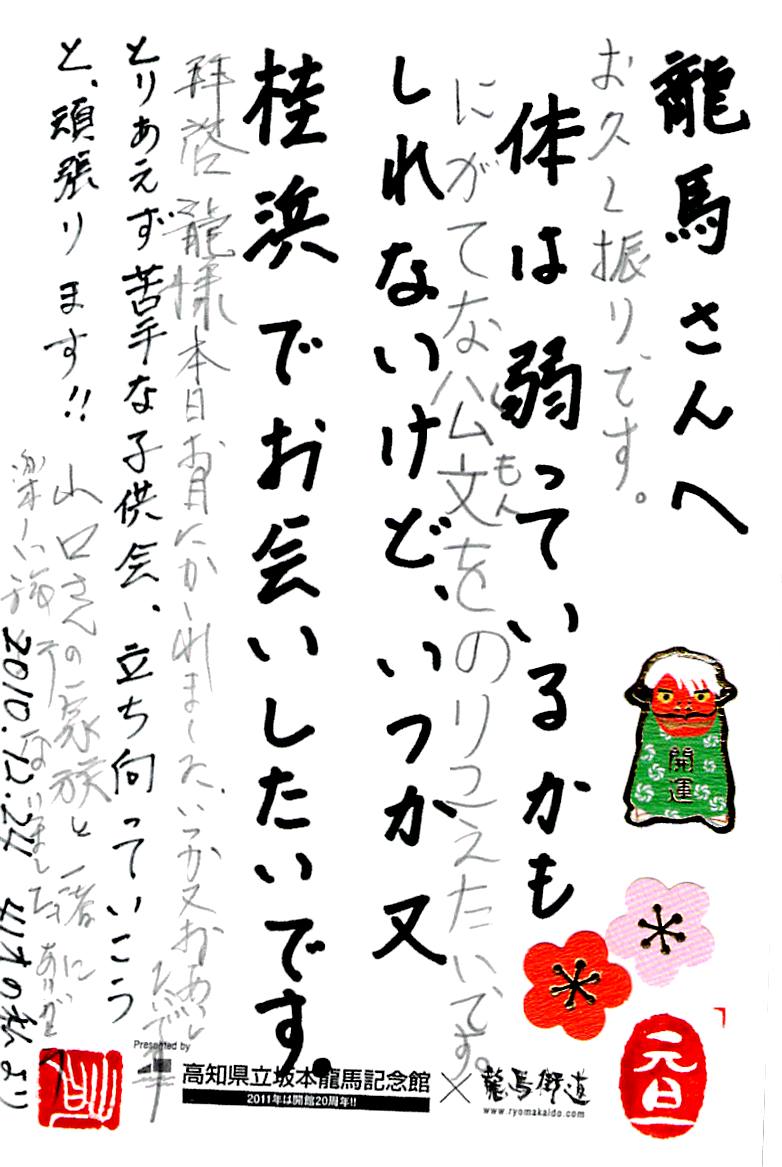 龍馬さんへ
お久し振りです。
体は弱っているかも
にがてな公文をのりこえたいです。
くもん
しれないけど、いつか又
桂浜でお会いしたいです。
拝啓龍様本日お目にかかれました、いつか又お
たいです
とりあえず苦手な子供会、立ち向っていこう
と、頑張ります!!
山口さんの家族と一緒に
楽しい旅行
2010.12.24
の私より
開運
元旦
Presented by
高知県立坂本龍馬記念館
2011年は開館20周年!!
×
龍馬街道
www.ryomakaido.com